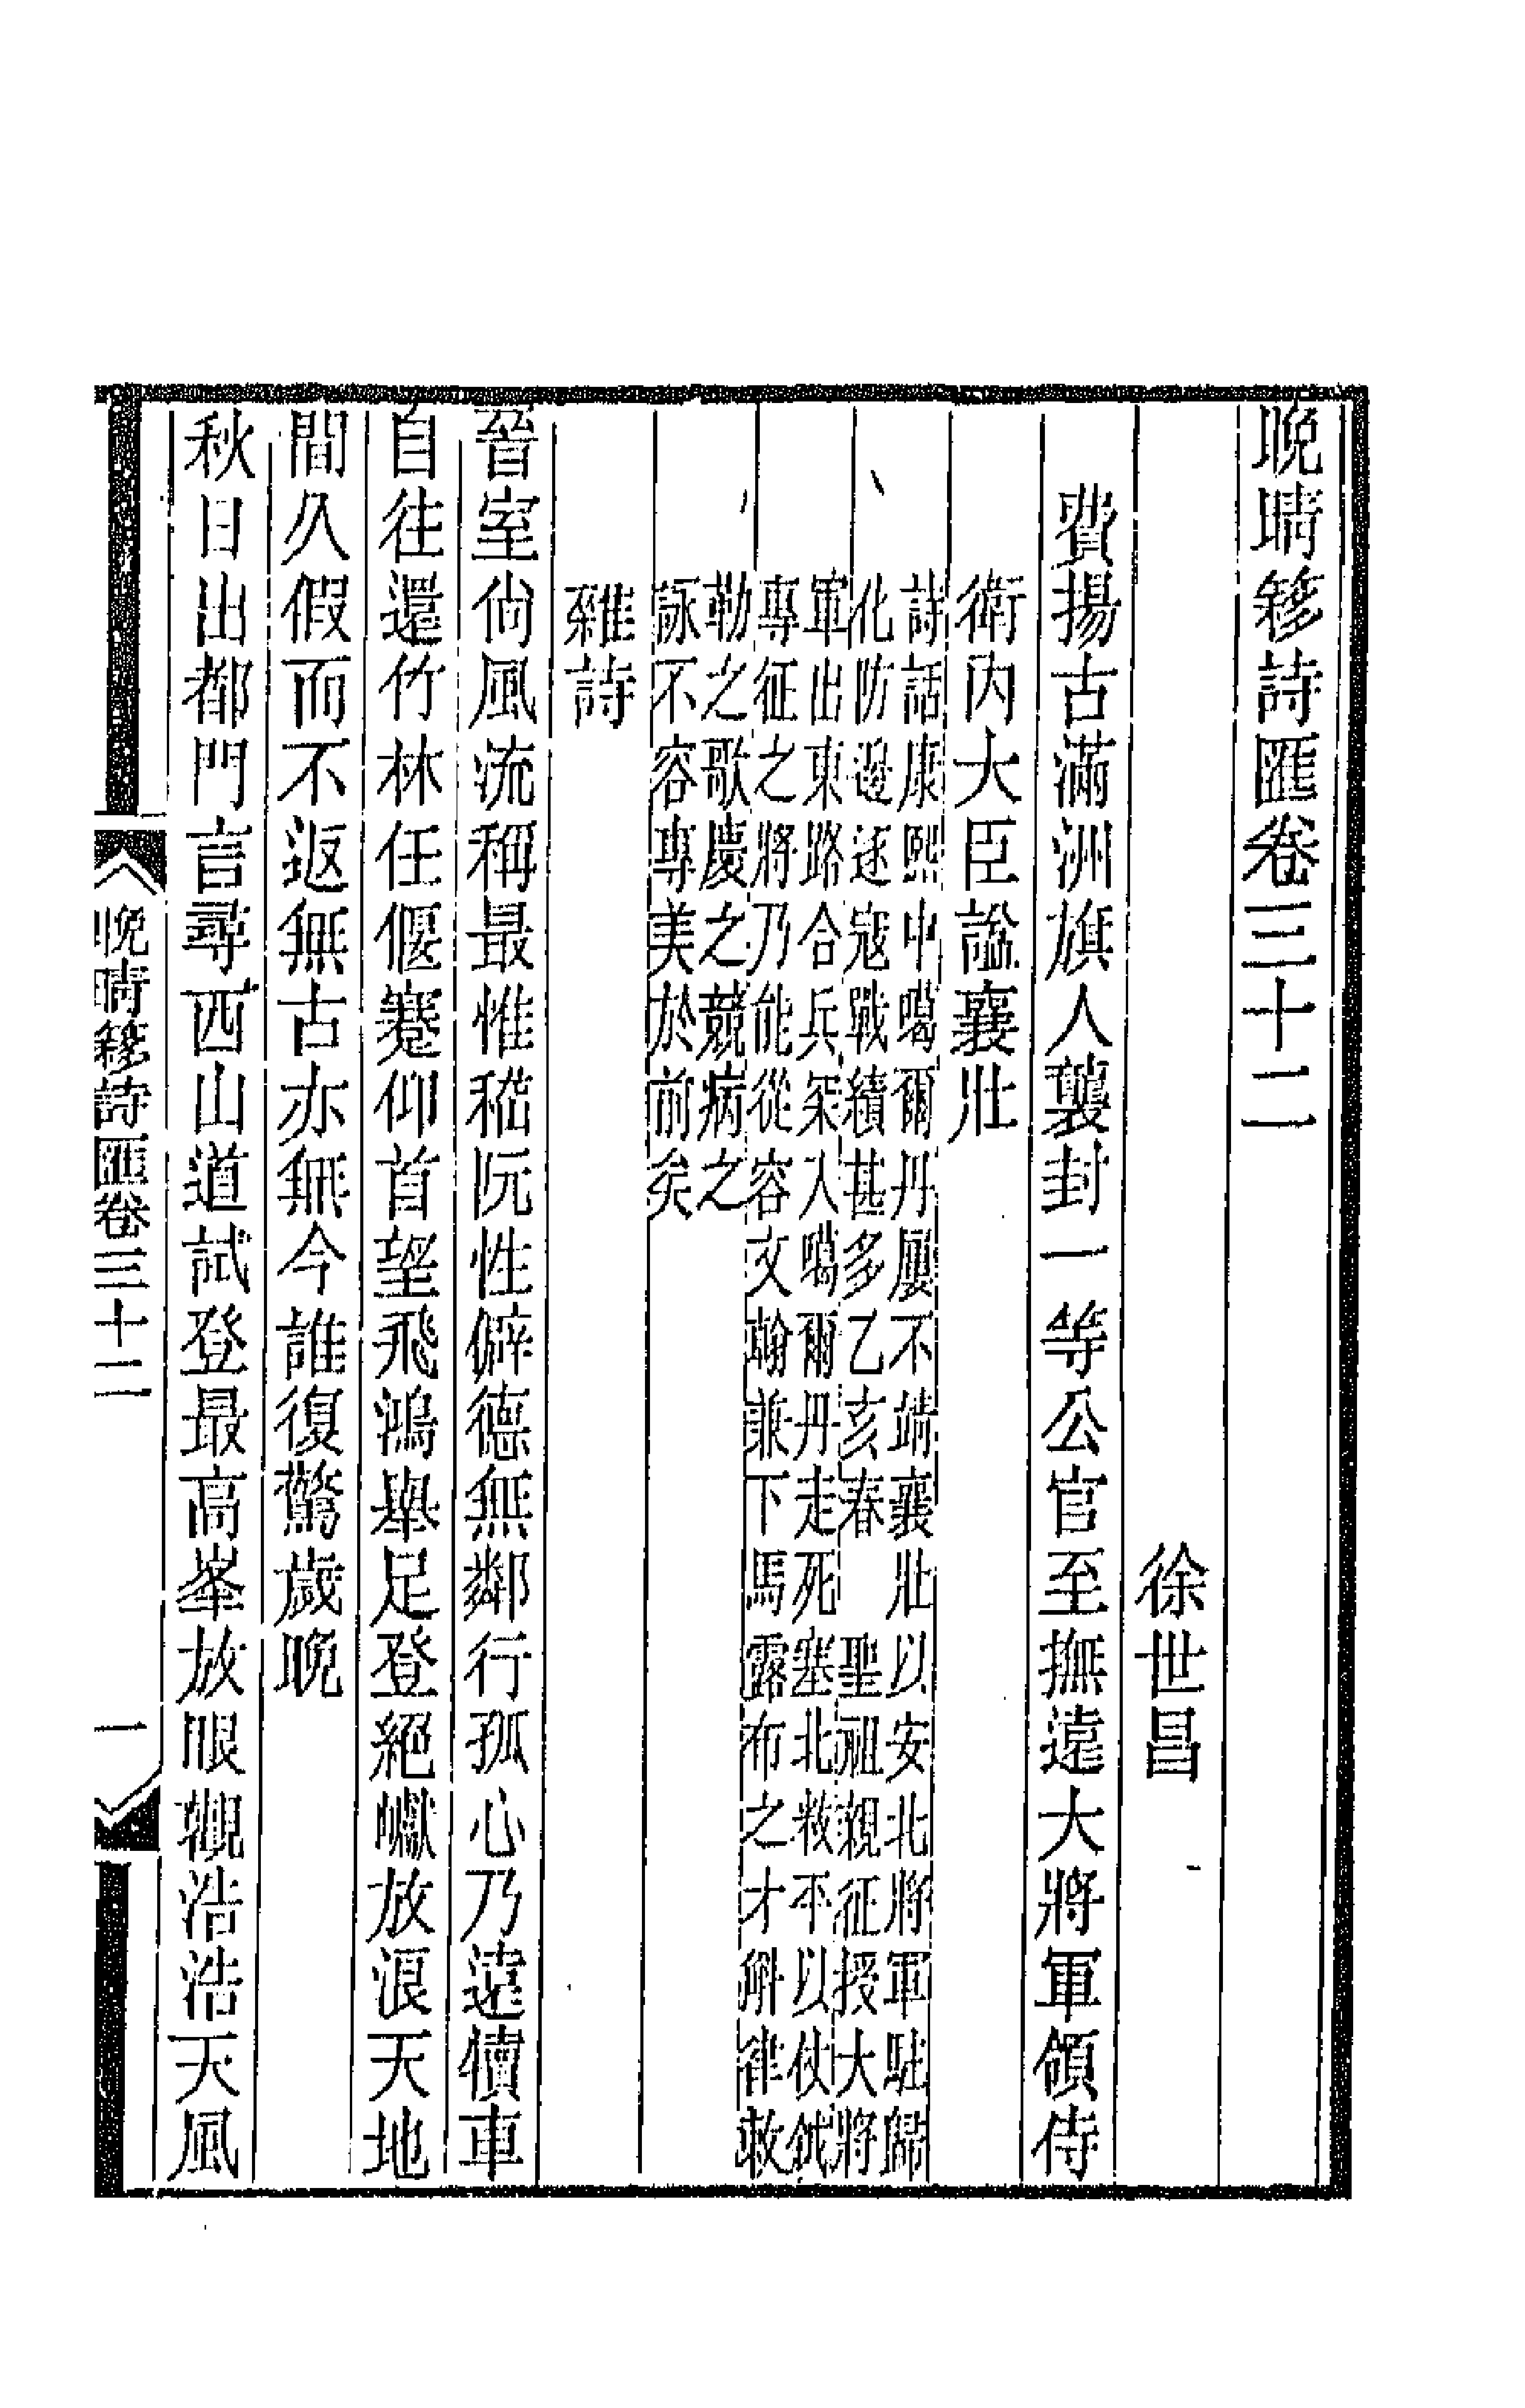 晚晴簃詩匯卷三十二
徐世昌
費揚古滿洲旗人襲封一等公官至撫遠大將軍領侍
衛內大臣諡襄壯
詩話康熙中噶爾丹屢不靖襄壯以安北將軍駐歸
化防邊逐寇戰績甚多乙亥春　聖祖親征授大將
軍出東路合兵罙入噶爾丹走死塞北敉平以仗鉞
專征之將乃能從容文翰兼下馬露布之才斛律敕
勒之歌慶之競病之
詠不容專美於前矣
雜詩
晉室尙風流稱最惟嵇阮性僻德無鄰行孤心乃遠犢車
自往還竹林任偃蹇仰首望飛鴻舉足登絕巘放浪天地
間久假而不返無古亦無今誰復驚歲晚
秋日出都門言尋西山道試登最高峯放眼觀浩浩天風
晚晴簃詩匯卷三十二
一